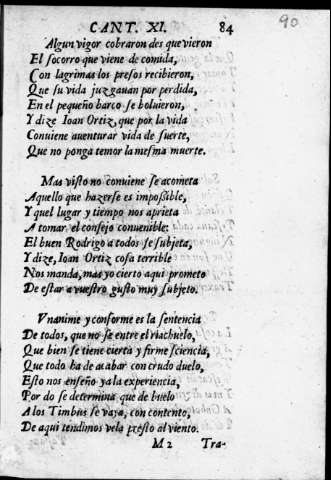 CANT. XI. 84
90
Algun vigor cobraron des que vieron
El socorro que viene de comida,
Con lagrimas los presos recibieron,
Que su vida juzgauan por perdida,
En el pequeño barco se boluieron,
Y dize Ioan Ortiz, que por la vida
Conuiene auenturar vida de suerte,
Que no ponga temor la mesma muerte.
Mas visto no conuiene se acometa
Aquello que hazerse es impossible,
Y quel lugar y tiempo nos aprieta
A tomar el consejo conuenible:
El buen Rodrigo a todos se subjeta,
Y dize, Ioan Ortiz cosa terrible
Nos manda, mas yo cierto aqui prometo
De estar a vuestro gusto muy subjeto.
Vnanime y conforme es la sentencia
De todos, que no se entre el riachuelo,
Que bien se tiene cierta y firme sciencia,
Que todo ha de acabar con crudo duelo,
Esto nos enseño ya la experiencia,
Por do se determina que de buelo
A los Timbus se vaya, con contento,
De aqui tendimos vela presto al viento.
M 2 Tra-